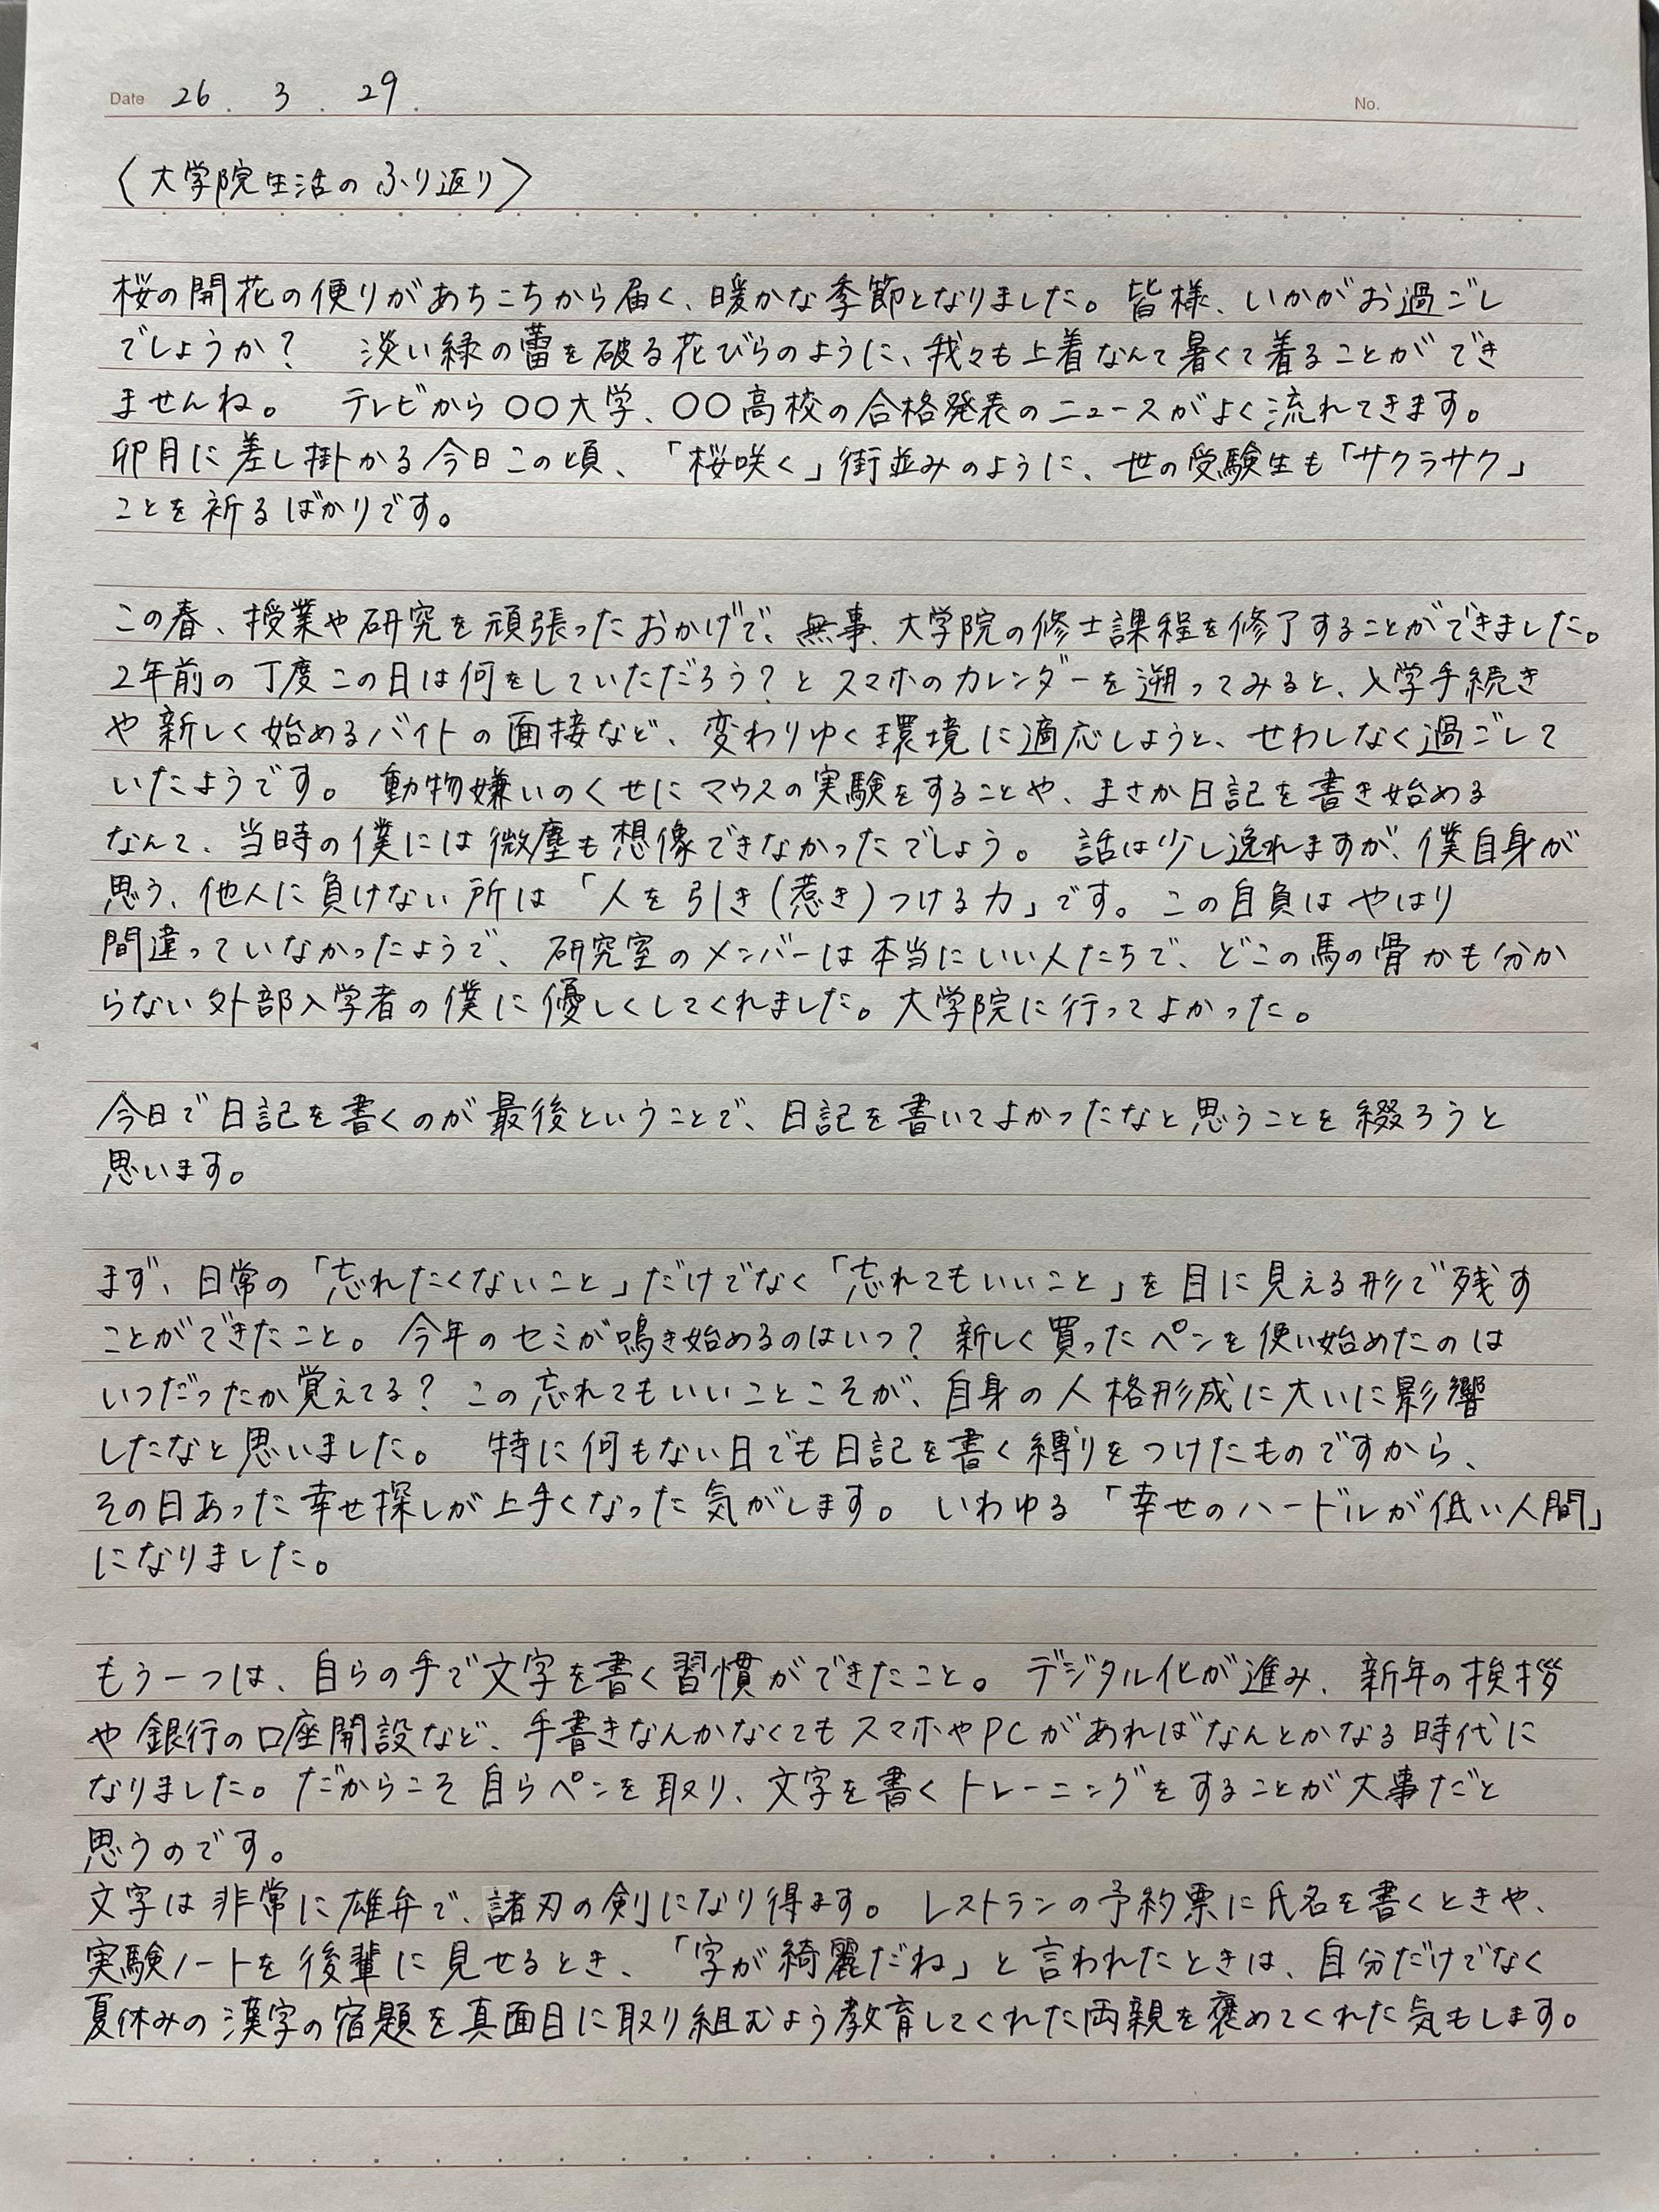 Date 26. 3. 29.
No.
〈大学院生活のふり返り〉
桜の開花の便りがあちこちから届く、暖かな季節となりました。皆様、いかがお過ごし
でしょうか? 淡い緑の蕾を破る花びらのように、我々も上着なんて暑くて着ることができ
ませんね。 テレビから○○大学、○○高校の合格発表のニュースがよく流れてきます。
卯月に差し掛かる今日この頃、「桜咲く」街並みのように、世の受験生も「サクラサク」
ことを祈るばかりです。
この春、授業や研究を頑張ったおかげで、無事、大学院の修士課程を修了することができました。
2年前の丁度この日は何をしていただろう?とスマホのカレンダーを遡ってみると、入学手続き
や新しく始めるバイトの面接など、変わりゆく環境に適応しようと、せわしなく過ごして
いたようです。 動物嫌いのくせにマウスの実験をすることや、まさか日記を書き始める
なんて、当時の僕には微塵も想像できなかったでしょう。 話は少し逸れますが、僕自身が
思う、他人に負けない所は「人を引き(惹き)つける力」です。この自負はやはり
間違っていなかったようで、研究室のメンバーは本当にいい人たちで、どこの馬の骨かも分か
らない外部入学者の僕に優しくしてくれました。大学院に行ってよかった。
今日で日記を書くのが最後ということで、日記を書いてよかったなと思うことを綴ろうと
思います。
まず、日常の「忘れたくないこと」だけでなく「忘れてもいいこと」を目に見える形で残す
ことができたこと。今年のセミが鳴き始めるのはいつ?新しく買ったペンを使い始めたのは
いつだったか覚えてる?この忘れてもいいことこそが、自身の人格形成に大いに影響
したなと思いました。 特に何もない日でも日記を書く縛りをつけたものですから、
その日あった幸せ探しが上手くなった気がします。いわゆる「幸せのハードルが低い人間」
になりました。
もう一つは、自らの手で文字を書く習慣ができたこと。デジタル化が進み、新年の挨拶
や銀行の口座開設など、手書きなんかなくてもスマホやPCがあればなんとかなる時代に
なりました。だからこそ自らペンを取り、文字を書くトレーニングをすることが大事だと
思うのです。
文字は非常に雄弁で、諸刃の剣になり得ます。レストランの予約票に氏名を書くときや、
実験ノートを後輩に見せるとき、「字が綺麗だね」と言われたときは、自分だけでなく
夏休みの漢字の宿題を真面目に取り組むよう教育してくれた両親を褒めてくれた気もします。